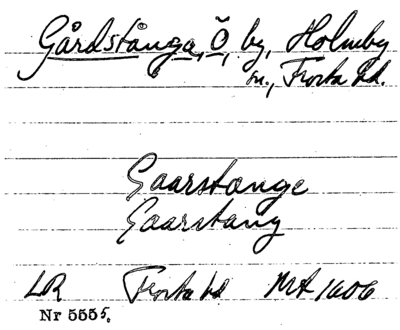 Gårdstånga, Ö, by, Holmby
sn., Frosta hd.
Gaarstange
Gaarstang
LR Frosta hd Mt 1606
Nr 5555.